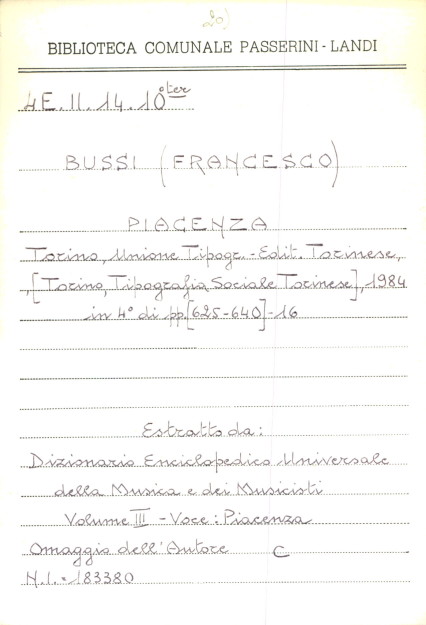 20)
BIBLIOTECA COMUNALE PASSERINI - LANDI
4E. II. 14. 10 ter
BUSSI (FRANCESCO)
PIACENZA
Torino, Unione Tipogr. - Edit. Torinese,
, [Torino, Tipografia Sociale Torinese], 1984
in 4° di pp. [625-640] - 16
Estratto da:
Dizionario Enciclopedico Universale
della Musica e dei Musicisti
Volume III - Voce: Piacenza
Omaggio dell'Autore C
N.I. = 183380